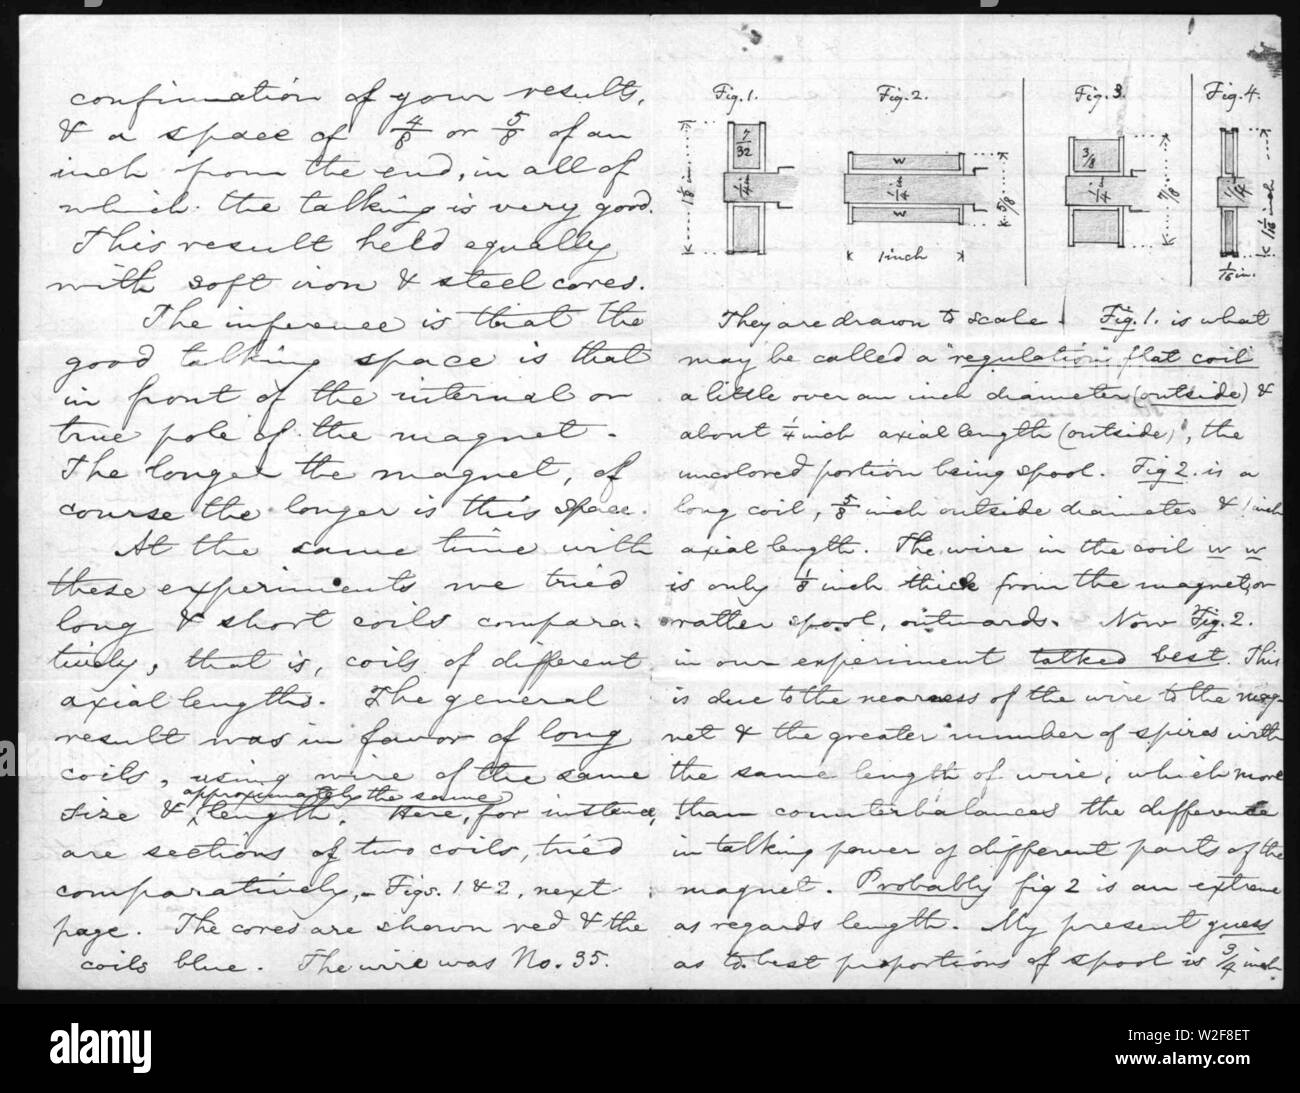 confirmation of your results,
& a space of 4/8 or 5/8 of an
inch from the end, in all of
which the talking is very good.
This result held equally
with soft iron & steel cores.
The inference is that the
good talking space is that
in front of the internal or
true pole of the magnet.
The longer the magnet, of
course the longer is this space.
At the same time with
these experiments we tried
long & short coils compara-
tively, that is, coils of different
axial lengths. The general
result was in favor of long
coils, using wire of the same
approximately the same
size & length. Here, for instance,
are sections of two coils, tried
comparatively, - Figs. 1 & 2, next
page. The cores are shown red & the
coils blue. The wire was No. 35.
Fig. 1. Fig. 2. Fig. 3. Fig. 4.
1 1/8 in.
7/32
1/4 in
w
1/4 in
w
5/8
1 inch
3/8
1/4 in
7/8
1/4
1 1/16 inch
1/16 in.
They are drawn to scale. Fig. 1. is what
may be called a "regulation" flat coil
a little over an inch diameter (outside) &
about 1/4 inch axial length (outside), the
uncolored portion being spool. Fig 2. is a
long coil, 5/8 inch outside diameter & 1 inch
axial length. The wire in the coil w w
is only 1/8 inch thick from the magnet, or
rather spool, outwards. Now Fig. 2.
in our experiment talked best. This
is due to the nearness of the wire to the mag-
net & the greater number of spires with
the same length of wire, which more
than counterbalances the difference
in talking power of different parts of the
magnet. Probably fig 2 is an extreme
as regards length. My present guess
as to best proportions of spool is 3/4 inch
alamy
W2F8ET
www.alamy.com